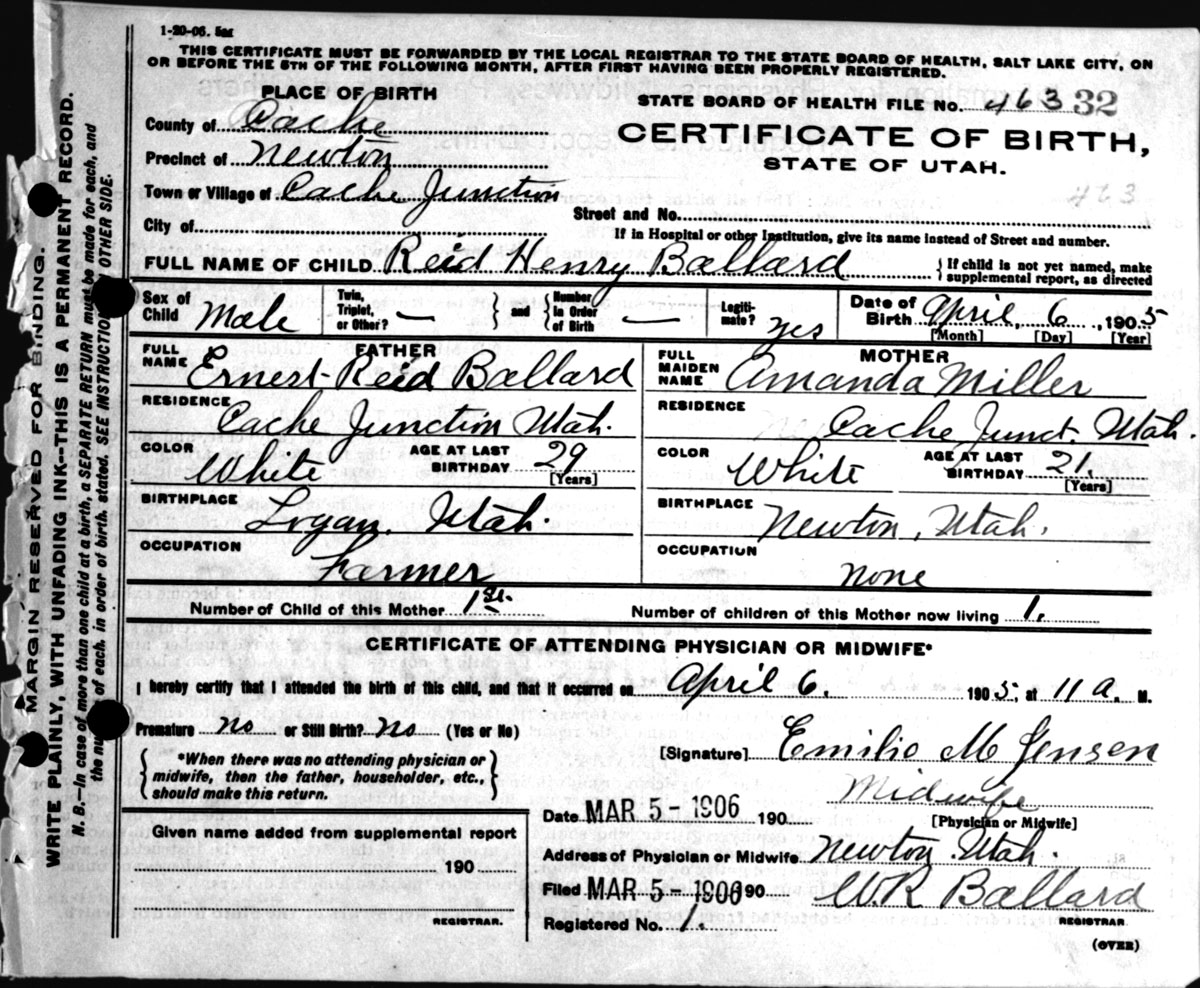 1-20-06. 5m
THIS CERTIFICATE MUST BE FORWARDED BY THE LOCAL REGISTRAR TO THE STATE BOARD OF HEALTH, SALT LAKE CITY, ON
OR BEFORE THE 5TH OF THE FOLLOWING MONTH, AFTER FIRST HAVING BEEN PROPERLY REGISTERED.
PLACE OF BIRTH
STATE BOARD OF HEALTH FILE No. 463 32
County of Cache
CERTIFICATE OF BIRTH,
Precinct of Newton
STATE OF UTAH.
Town or Village of Cache Junction
463
Street and No.
City of
If in Hospital or other Institution, give its name instead of Street and number.
FULL NAME OF CHILD Reid Henry Ballard { If child is not yet named, make supplemental report, as directed
Sex of Child Male Twin, Triplet, or Other? — } and { Number in Order of Birth — Legitimate? yes Date of Birth April, 6, 1905
[Month] [Day] [Year]
FATHER
FULL NAME Ernest Reid Ballard
RESIDENCE
Cache Junction Utah.
COLOR White AGE AT LAST BIRTHDAY 29
[Years]
BIRTHPLACE
Logan, Utah.
OCCUPATION
Farmer
MOTHER
FULL MAIDEN NAME Amanda Miller
RESIDENCE
Cache Junct. Utah.
COLOR White AGE AT LAST BIRTHDAY 21.
[Years]
BIRTHPLACE
Newton, Utah.
OCCUPATION
none
Number of Child of this Mother 1st. Number of children of this Mother now living 1.
CERTIFICATE OF ATTENDING PHYSICIAN OR MIDWIFE*
I hereby certify that I attended the birth of this child, and that it occurred on April 6. 1905, at 11 a. M.
Premature no or Still Birth? no (Yes or No)
[Signature] Emilio M Jensen
{ *When there was no attending physician or
midwife, then the father, householder, etc.,
should make this return. }
Midwife
[Physician or Midwife]
Date MAR 5 - 1906 190
Given name added from supplemental report
190
REGISTRAR.
Address of Physician or Midwife Newton, Utah.
Filed MAR 5 - 1906 190 W.R Ballard
REGISTRAR
Registered No. 1.
(OVER)
MARGIN RESERVED FOR BINDING.
WRITE PLAINLY, WITH UNFADING INK--THIS IS A PERMANENT RECORD.
N. B.—In case of more than one child at a birth, a SEPARATE RETURN must be made for each, and
the number of each, in order of birth, stated. SEE INSTRUCTIONS ON OTHER SIDE.